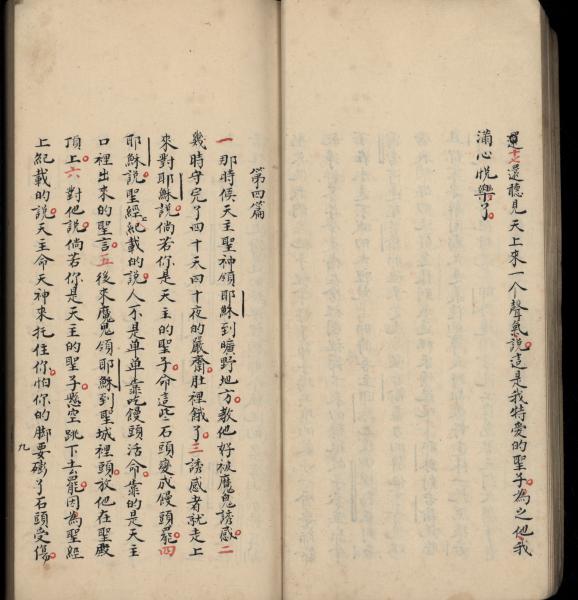 十七還聽見天上來一个聲氣。說這是我特愛的聖子。為之他我
滿心悅樂了。
第四篇
一那時候天主聖神領耶穌到曠野地方。教他好被魔鬼誘惑。二
幾時守完了四十天四十夜的嚴齋。肚裡餓了。三誘惑者就走上
來對耶穌說。倘若你是天主的聖子。命這些石頭變成饅頭罷。四
耶穌說。聖經上紀載的說。人不是單單靠吃饅頭活命。靠的是天主
口裡出來的聖言。五後來魔鬼領耶穌到聖城裡頭。放他在聖殿
頂上。六對他說。倘若你是天主的聖子。懸空跳下去罷。因為聖經
上紀載的說。天主命天神來托住你。怕你的脚要磞了石頭受傷。
九